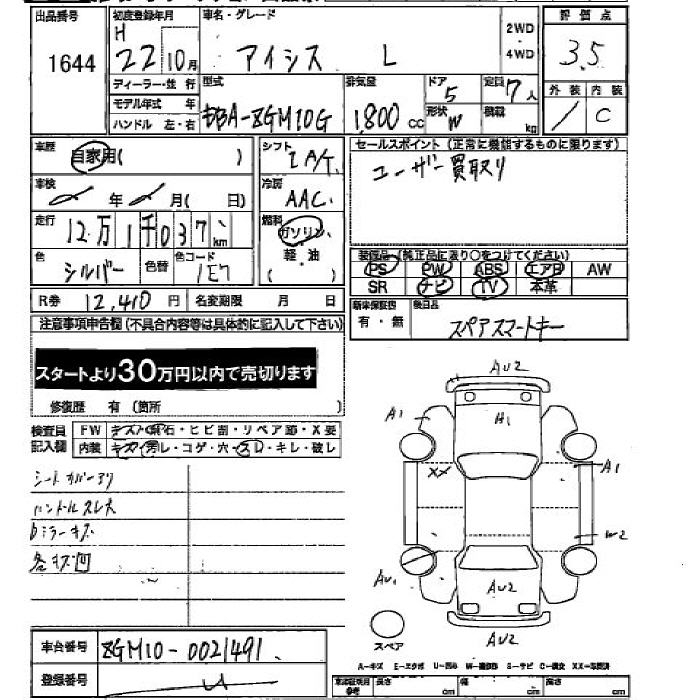 出品番号
1644
初度登録年月
H
22 10月
車名・グレード
アイシス L
2WD
4WD
評価点
3.5
外装 内装
/ C
ディーラー・並行
モデル年式 年
ハンドル 左・右
型式
DBA-ZGM10G
排気量
1,800 cc
ドア
5
形状
W
定員
7人
積載
kg
車歴
自家用( )
車検
年 月( 日)
走行
12万1千037km
色
シルバー
色替
色コード
1E7
シフト
I A/T.
冷房
AAC.
燃料
ガソリン
軽・油
( )
セールスポイント(正常に機能するものに限ります)
ユーザー買取り
装備品(純正品に限り○をつけてください)
PS PW ABS エアB AW
SR ナビ TV 本革
R券 12,410円 名変期限 月 日
新車保証書
有・無
後日品
スペアスマートキー
注意事項申告欄(不具合内容等は具体的に記入して下さい)
スタートより30万円以内で売切ります
修復歴 有(箇所 )
検査員
記入欄
FW キズ・飛石・ヒビ割・リペア跡・X要
内装 キズ・汚レ・コゲ・穴・スレ・キレ・破レ
シートカバーアリ
ハンドルスレ大
Dミラーキズ
各キズ凹
AU2
A1
A1
XX
A1
W2
AU1
AU2
AU2
スペア
車台番号
ZGM10-0021491
登録番号
A-キズ E-エクボ U-凹み W-補修跡 S-サビ C-腐食 XX-交換済
車検証記載
参考
長さ cm
幅 cm
高さ cm